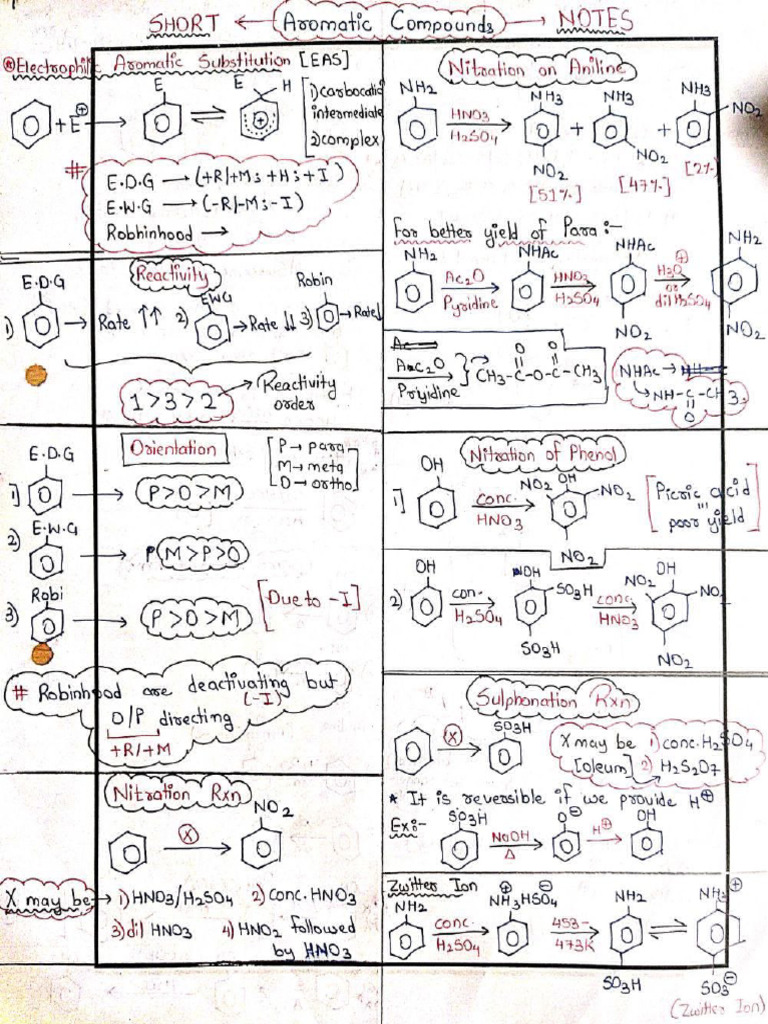 SHORT ← Aromatic Compounds → NOTES
Electrophilic Aromatic Substitution [EAS]
+ E⊕ →
E
⇌
E H
1) carbocatic
intermediate
2) complex
# E.D.G → (+R/+M; +H; +I)
E.W.G → (-R/-M; -I)
Robhinhood →
Reactivity
E.D.G
1) → Rate ↑↑
EWG
2) → Rate ↓↓
Robin
3) → Rate↓
1 > 3 > 2
Reactivity
order
Orientation
P → para
M → meta
O → ortho
E.D.G
1) → P>O>M
E.W.G
2) → P M>P>O
Robi
3) → P>O>M
[Due to -I]
# Robinhood are deactivating but
(-I)
O/P directing
+R/+M
Nitration Rxn
X
NO2
X may be → 1) HNO3/H2SO4 2) Conc. HNO3
3) dil HNO3 4) HNO2 followed
by HNO3
Nitration on Aniline
NH2
HNO3
H2SO4
NH3
NO2
[51%]
+
NH3
NO2
[47%]
+
NH3
NO2
[2%]
For better yield of Para :-
NH2
Ac2O
Pyridine
NHAc
HNO3
H2SO4
NHAc
NO2
H3O⊕
or
dil H2SO4
NH2
NO2
Ac2O
Priyidine
O O
CH3-C-O-C-CH3
NHAc →
NH-C-CH3
O
Nitration of Phenol
1]
OH
Conc.
HNO3
NO2 OH NO2
NO2
[Picric acid
poor yield]
2)
OH
con.
H2SO4
OH
SO3H
SO3H
conc
HNO3
OH
NO2 NO
NO2
Sulphonation Rxn
X
SO3H
X may be 1) conc. H2SO4
[oleum] 2) H2S2O7
* It is reversible if we provide H⊕
Ex:-
SO3H
NaOH
Δ
O⊖
H⊕
OH
Zwitter Ion
NH2
conc.
H2SO4
⊕ ⊖
NH3HSO4
453-
473K
NH2
SO3H
⇌
NH3⊕
SO3⊖
(Zwitter Ion)